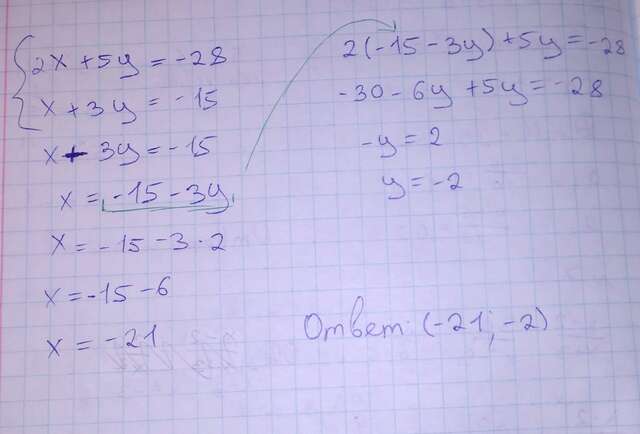 2x + 5y = -28
x + 3y = -15
x + 3y = -15
x = -15 - 3y
x = -15 - 3 · 2
x = -15 - 6
x = -21
2(-15 - 3y) + 5y = -28
-30 - 6y + 5y = -28
-y = 2
y = -2
Ответ: (-21; -2)